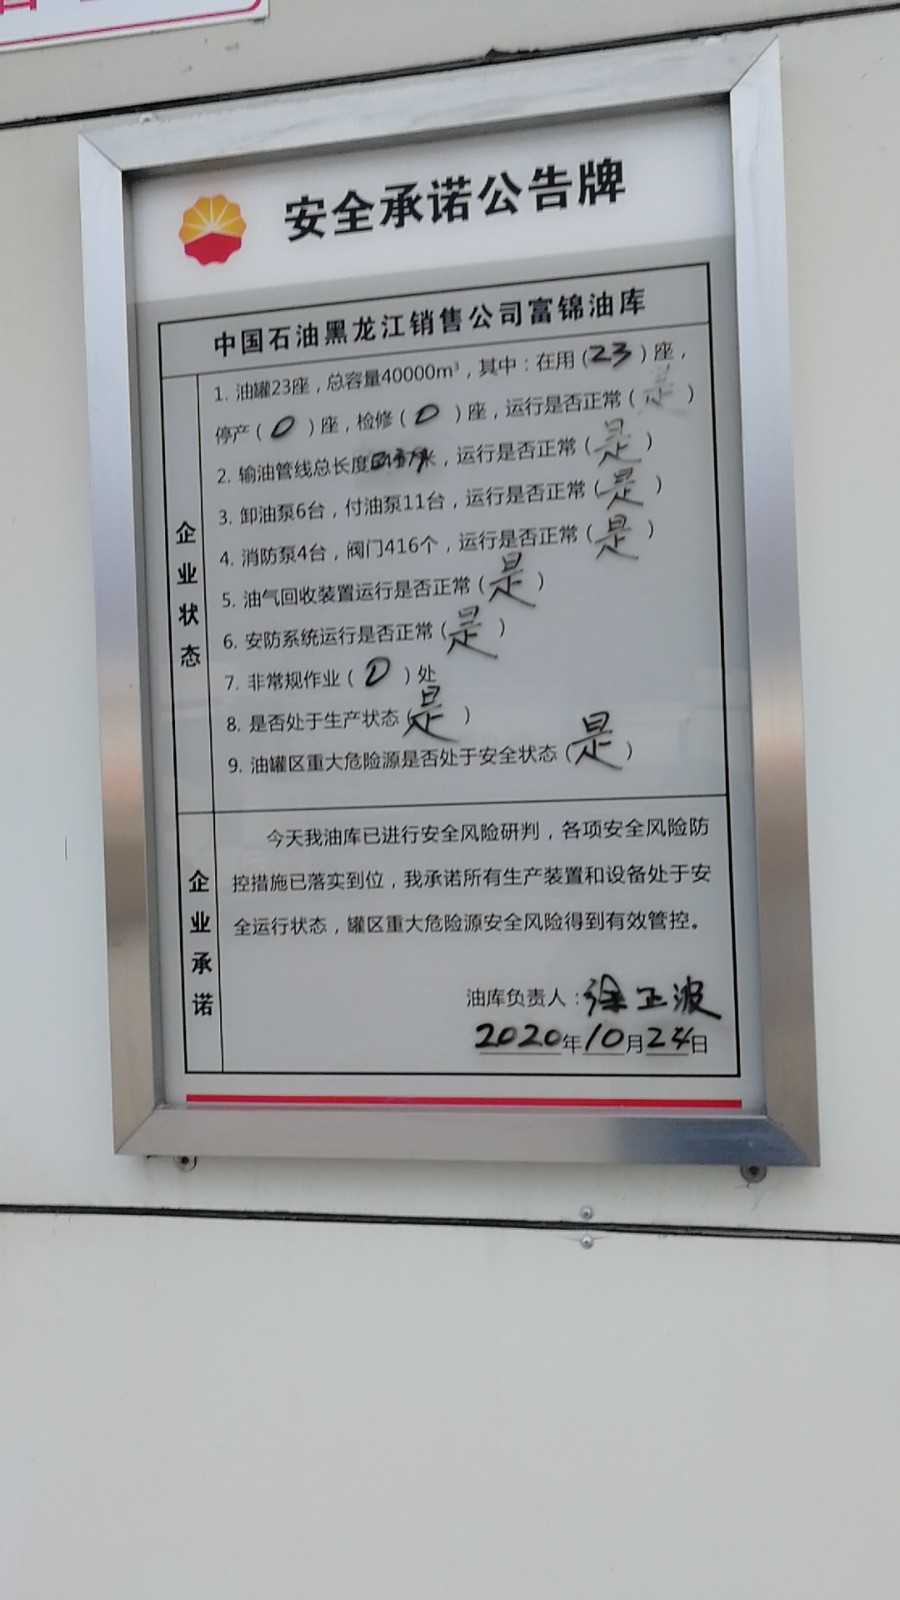 安全承诺公告牌
中国石油黑龙江销售公司富锦油库
企业状态
1. 油罐23座，总容量40000m³，其中：在用（23）座，
停产（0）座，检修（0）座，运行是否正常（是）
2. 输油管线总长度米，运行是否正常（是）
3. 卸油泵6台，付油泵11台，运行是否正常（是）
4. 消防泵4台，阀门416个，运行是否正常（是）
5. 油气回收装置运行是否正常（是）
6. 安防系统运行是否正常（是）
7. 非常规作业（0）处
8. 是否处于生产状态（是）
9. 油罐区重大危险源是否处于安全状态（是）
企业承诺
今天我油库已进行安全风险研判，各项安全风险防
控措施已落实到位，我承诺所有生产装置和设备处于安
全运行状态，罐区重大危险源安全风险得到有效管控。
油库负责人：徐正波
2020年10月24日